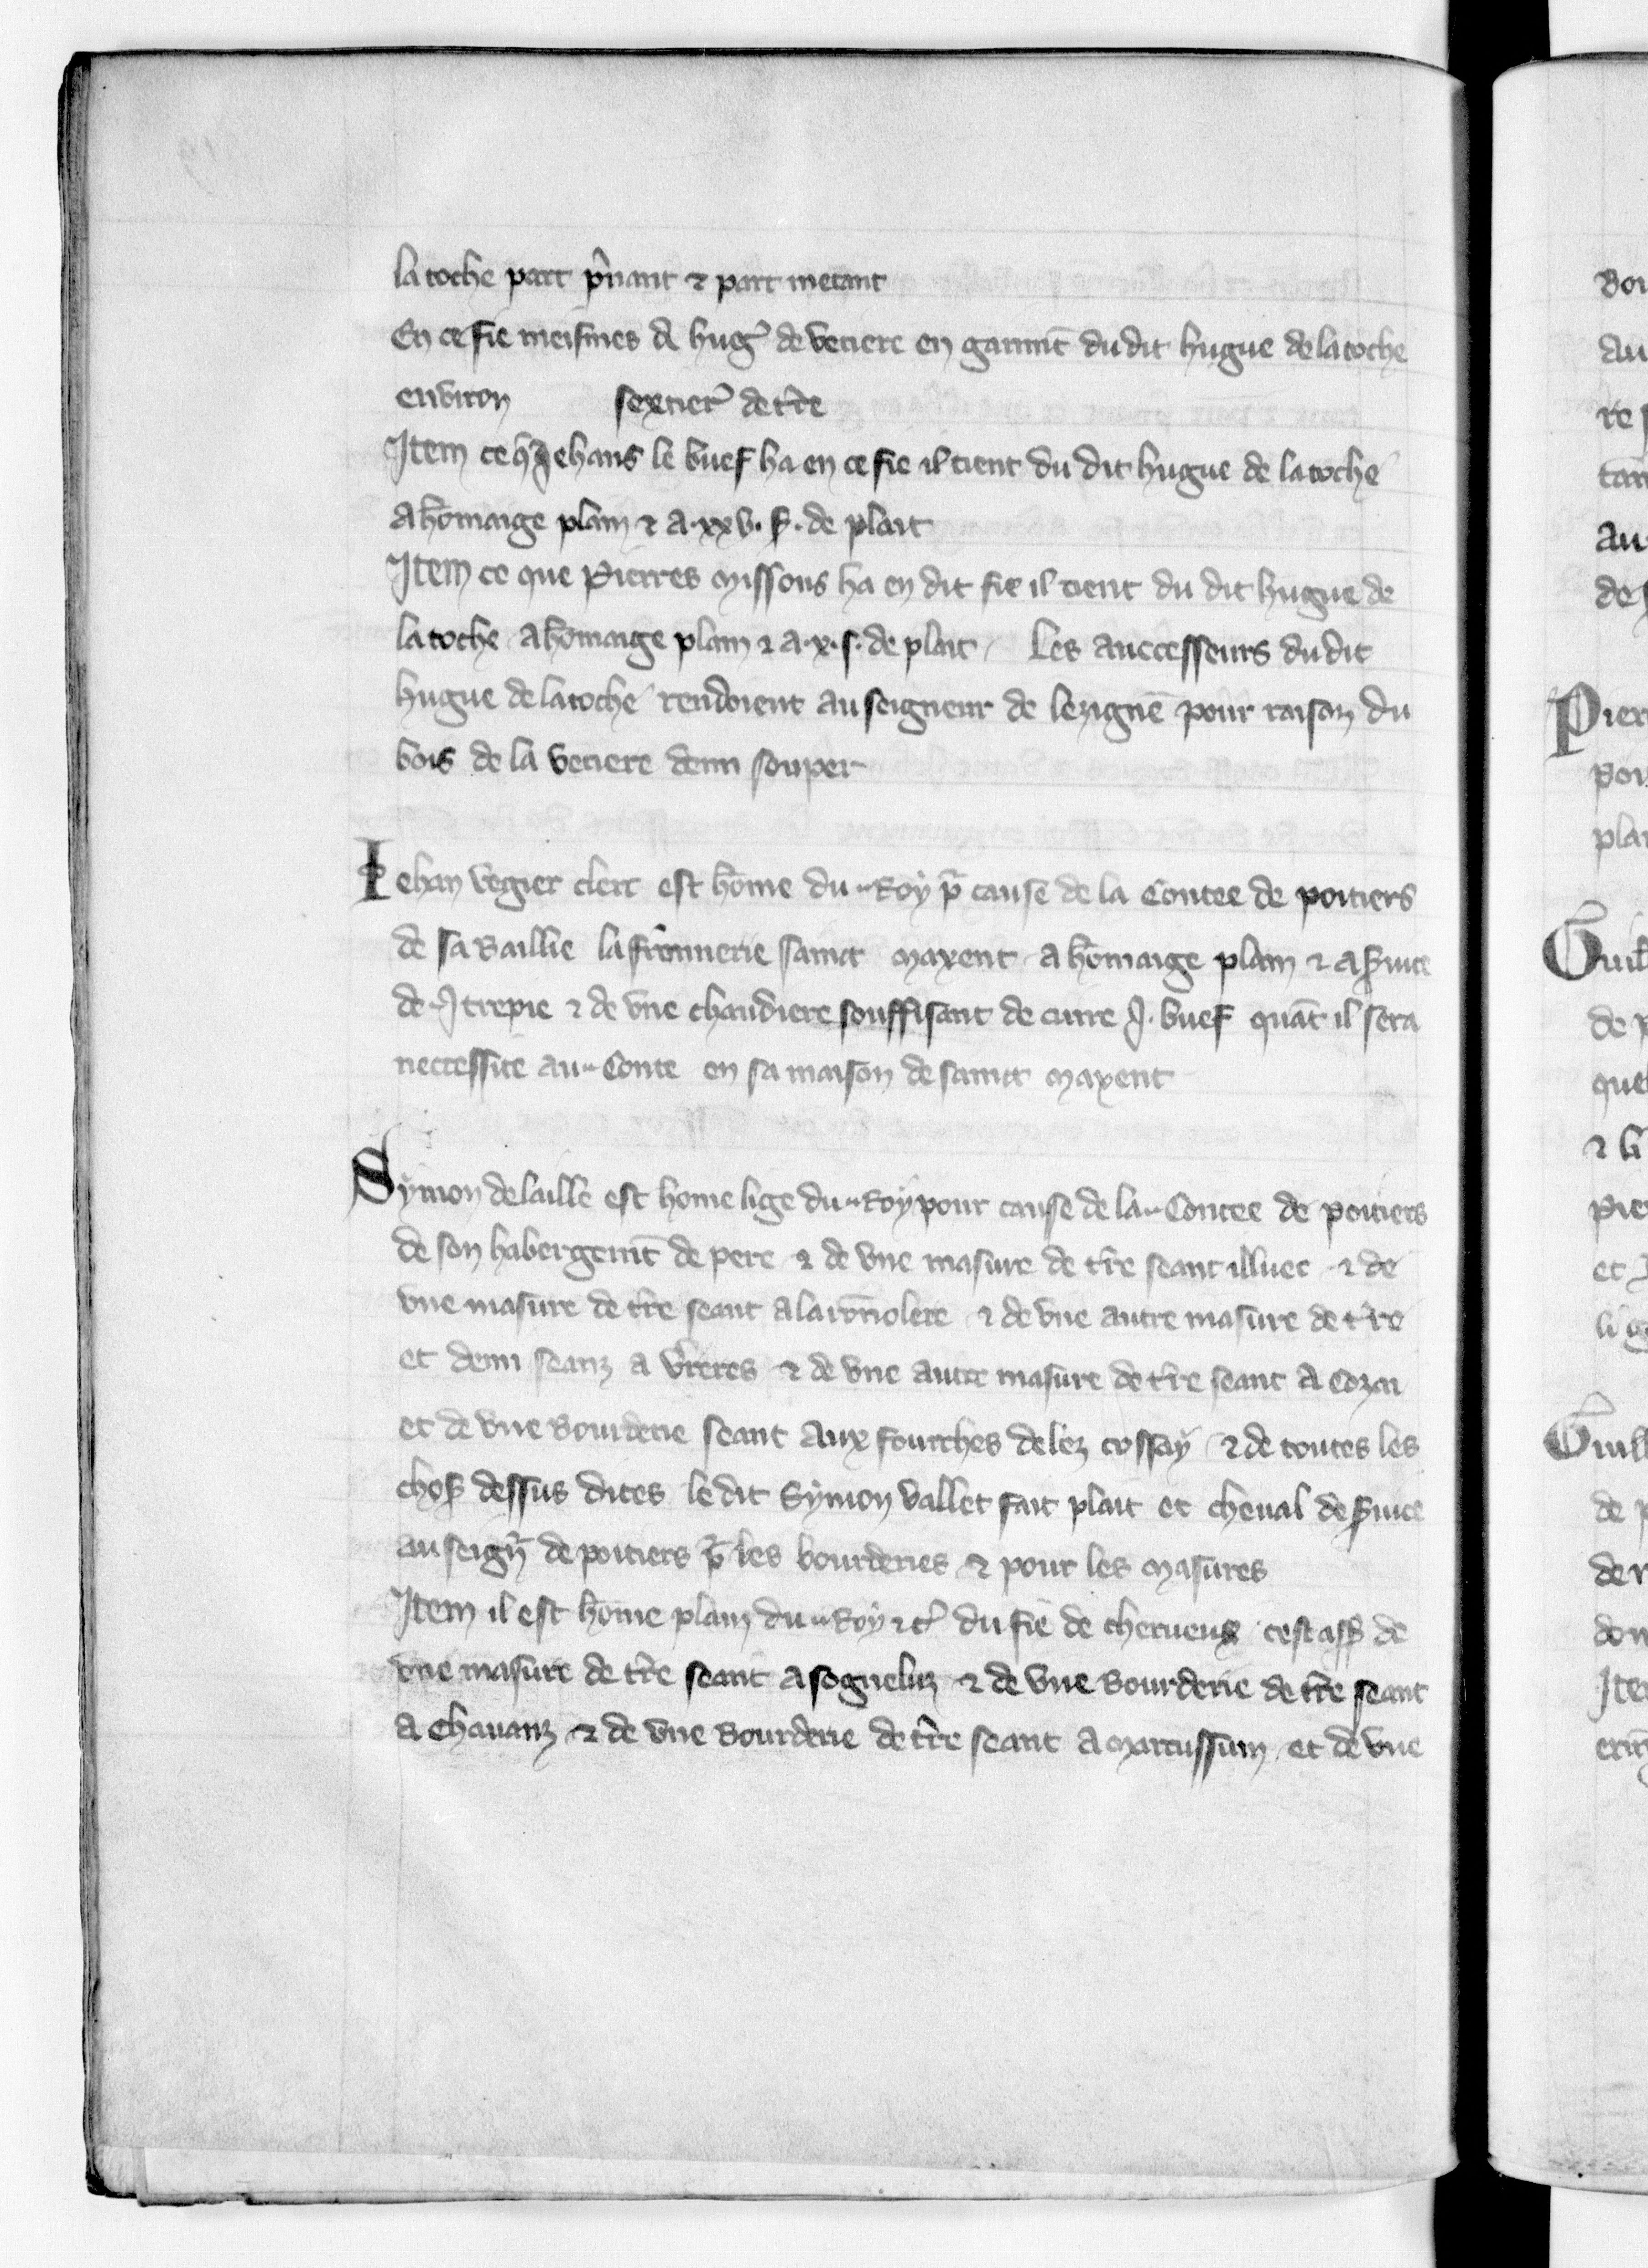 la toche part p̄nant ⁊ part metant
En ce fie meismes A hug' de vetiere en garimt̄ du dit hugue de la toche
environ sextier' de t̄re
Item ce q̄ Jehans le buef ha en ce fie il tient du dit hugue de la toche
A hōmaige plain ⁊ a .xxv. s. de plait
Item ce que Pierres Missons ha en dit fie il tient du dit hugue de
la toche A hōmaige plain ⁊ a .x. s. de plait / Les auccesseurs du dit
hugue de la toche rendoient au seigneur de lezignē pour raison du
bois de la vetiere demi souper
Jehan vegier clerc est hōme du Roy p̄ cause de la Contee de poitiers
de sa Baillie la frōnnerie sainct Maxent A hōmaige plain ⁊ a s̄uice
de .J. trepie ⁊ de vne chaudiere souffisant de cuire .J. buef quāt il sera
neccessite au Conte en sa maison de sainct Maxent
Symon de laille est home lige du Roy pour cause de la Contee de poitiers
de son habergemt̄ de pere ⁊ de vne masure de t̄re seant illuec ⁊ de
vne masure de t̄re seant a la ⁊ de vne autre masure de t̄re
et demi seanz a v̄reres ⁊ de vne autre masure de t̄re seant A Cozai
et de vne Bourderie seant Aux fourches delez cossay ⁊ de toutes les
chos̄ dessus dites le dit Symon vallet fait plait et cheual de s̄uice
au seign̄ de poitiers p̄ les bourderies ⁊ pour les Masures
Item il est hōme plain du Roy ⁊ c' du fie de cherueux cest ass̄ de
vne masure de t̄re seant A sogneluz ⁊ de vne Bourderie de t̄re seant
A Chauanz ⁊ de vne Bourderie de t̄re seant A Marcussum et de vne
Pier
Guill
Guill
Item